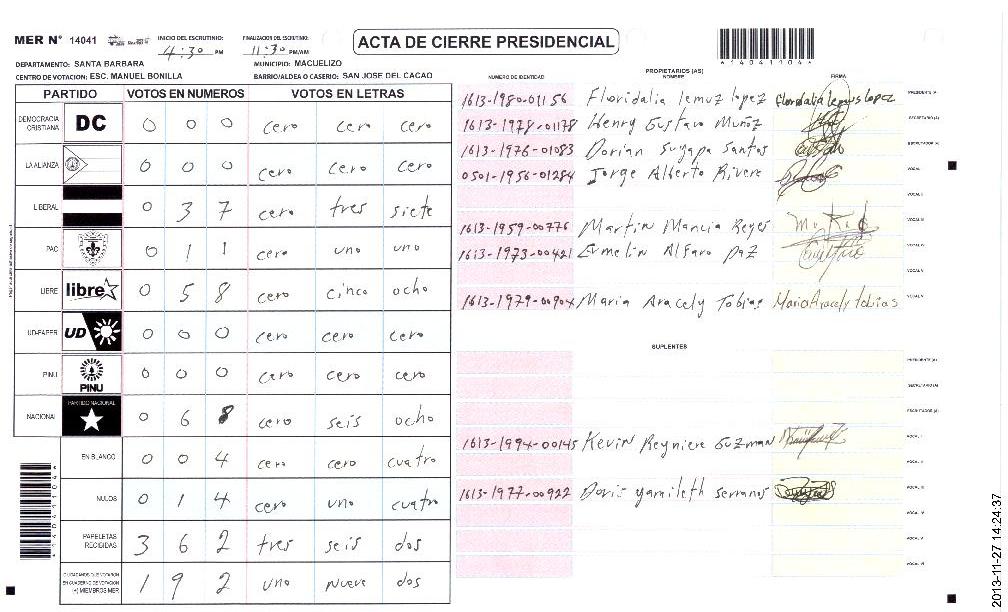 MER N° 14041
INICIO DEL ESCRUTINIO: 4:30 PM
FINALIZACION DEL ESCRUTINIO: 11:30 PM/AM
ACTA DE CIERRE PRESIDENCIAL
*14041104*
DEPARTAMENTO: SANTA BARBARA
MUNICIPIO: MACUELIZO
CENTRO DE VOTACION: ESC. MANUEL BONILLA
BARRIO/ALDEA O CASERIO: SAN JOSE DEL CACAO
PARTIDO VOTOS EN NUMEROS VOTOS EN LETRAS
DEMOCRACIA CRISTIANA DC 0 0 0 cero cero cero
LA ALIANZA 0 0 0 cero cero cero
LIBERAL 0 3 7 cero tres siete
PAC 0 1 1 cero uno uno
LIBRE libre 0 5 8 cero cinco ocho
UD-FAPER UD 0 0 0 cero cero cero
PINU PINU 0 0 0 cero cero cero
NACIONAL PARTIDO NACIONAL 0 6 8 cero seis ocho
EN BLANCO 0 0 4 cero cero cuatro
NULOS 0 1 4 cero uno cuatro
PAPELETAS RECIBIDAS 3 6 2 tres seis dos
CIUDADANOS QUE VOTARON EN CUADERNO DE VOTACION (+) MIEMBROS MER 1 9 2 uno nueve dos
PROPIETARIOS (AS)
NUMERO DE IDENTIDAD NOMBRE FIRMA
1613-1980-01156 Floridalia lemuz lopez Floridalia lemus lopez PRESIDENTE (A)
1613-1978-01178 Henry Gustavo Muñoz SECRETARIO (A)
1613-1976-01083 Dorian Suyapa Santos ESCRUTADOR (A)
0501-1956-01284 Jorge Alberto Rivere VOCAL I
VOCAL II
1613-1959-00776 Martin Mancia Reyes VOCAL III
1613-1973-00421 Ermelin Alfaro Paz VOCAL IV
VOCAL V
1613-1979-00904 Maria Aracely Tobias Maria Aracely tobias
SUPLENTES
PRESIDENTE (A)
SECRETARIO (A)
ESCRUTADOR (A)
1613-1994-00145 Kevin Reyniere Guzman VOCAL I
VOCAL II
1613-1977-00922 Doris yamileth serranos VOCAL III
VOCAL IV
VOCAL V
VOCAL VI
*14041104*
2013-11-27 14:24:37